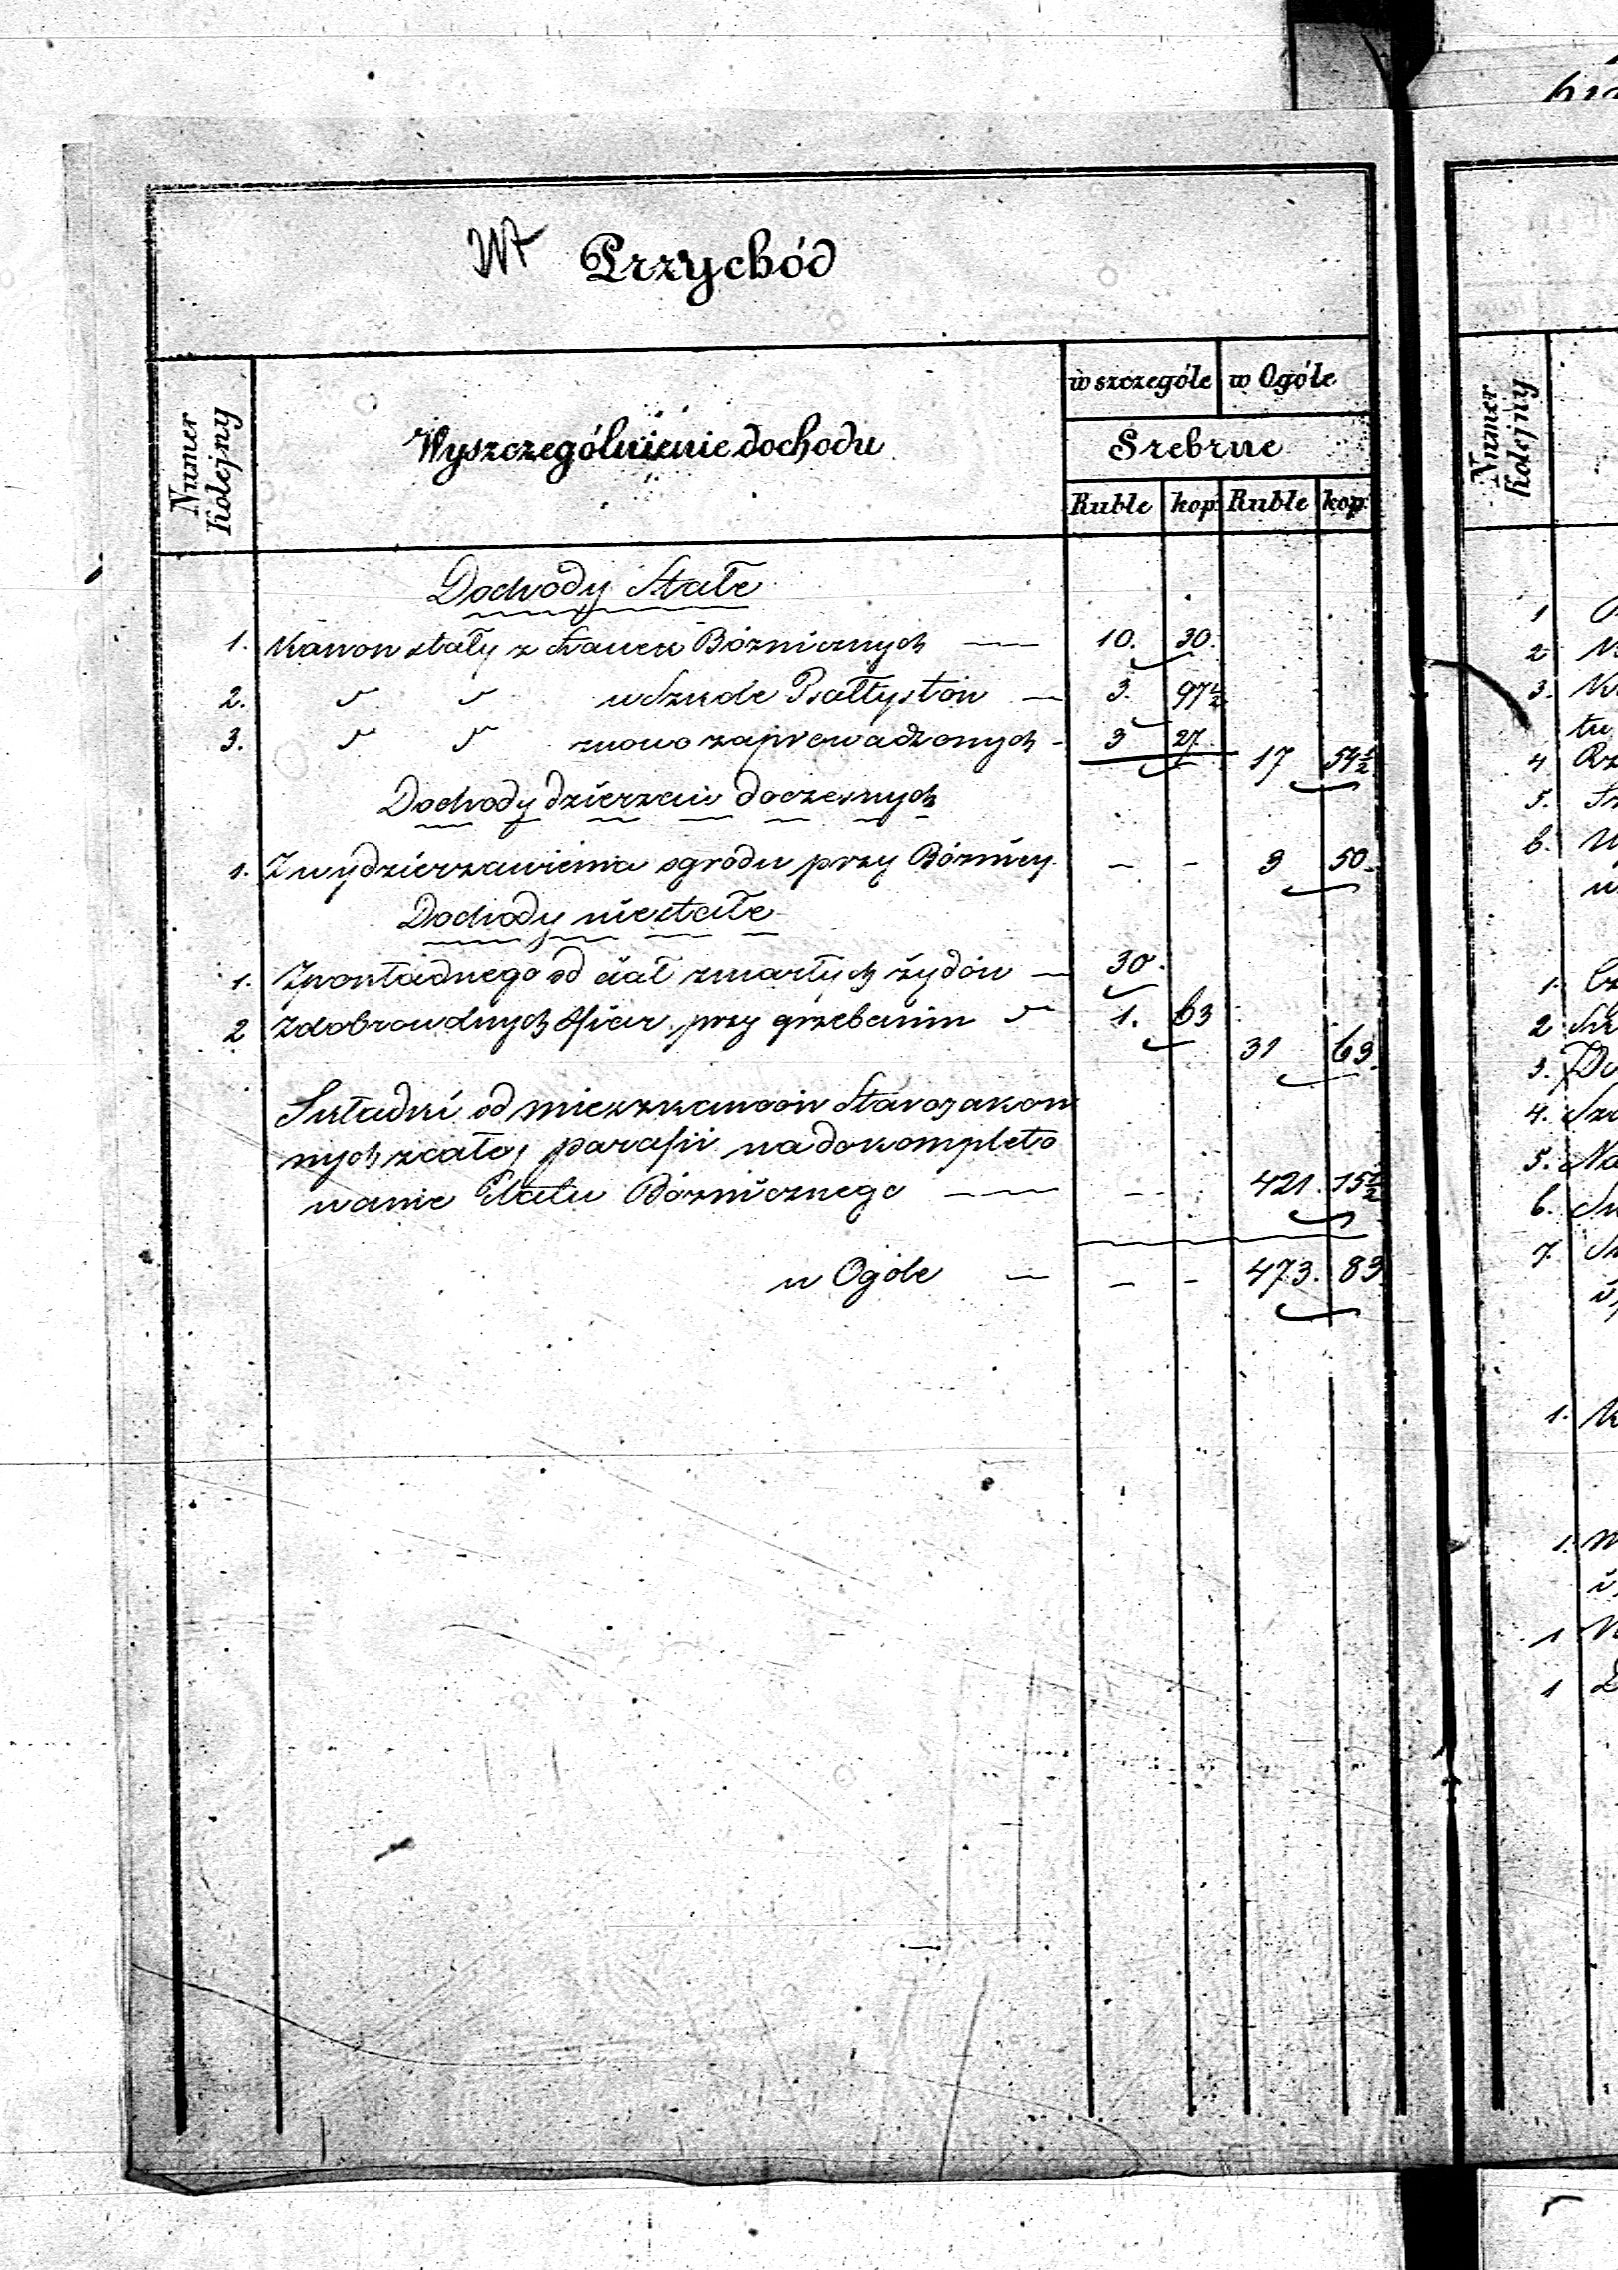 Przychód
Numer Kolejny
Wyszczególnienie dochodu
w szczególe w Ogóle
Srebrne
Ruble kop. Ruble kop.
Dochody Stałe
1. Kanon stały z Ławek Bóżnicznych — 10. 30.
2. " " w Szkole Psałtystów — 3. 97½
3. " " znowo zaprowadzonych - 3 27. 17 54½
Dochody dzierżaw doczesnych
1. Z wydzierżawienia ogrodu przy Bóżnicy. — - 3 50.
Dochody niestałe
1. Z pokładnego od ciał zmarłych żydów — 30.
2 Z dobrowolnych Ofiar przy grzebaniu " 1. 63 31 63.
Składki od mieszkańców Starozakon
nych z całej parafii na dokompleto
wanie Etatu Bóżnicznego — — 421. 15½
w Ogóle — — - 473. 83
Numer Kolejny
1
2
3.
4
5.
6.
1.
2
3. Do
4.
5. Na
6.
7.
1.
1.
1
1